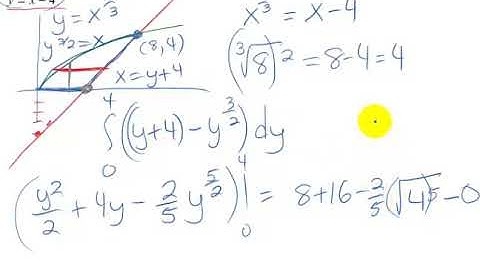 y = x^(2/3)
y^(3/2) = x
(8,4)
x = y+4
x^(2/3) = x-4
(∛8)^2 = 8-4 = 4
∫_0^4 ((y+4) - y^(3/2)) dy
(y^2/2 + 4y - 2/5 y^(5/2)) |_0^4 = 8+16-2/5(√4)^5-0